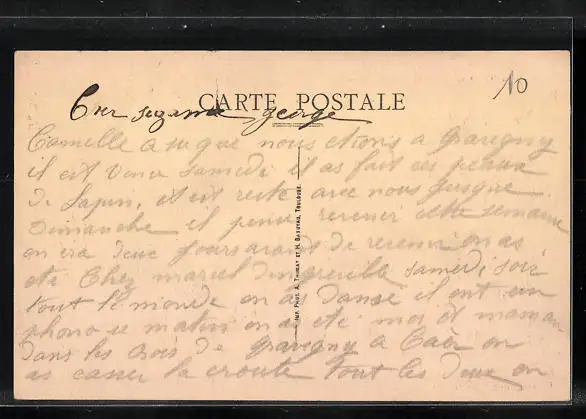 10
CARTE POSTALE
Cher suzanne george
Camille a su que nous etions a gravegny
il est venu samedi il as fait ces peaux
de lapin, et est resté avec nous jusque
Dimanche il pense revenir cette semaine
on ira deux jours avant de revenir on as
ete chez marcel samedi soir
tout le monde on a danse il ont un
phono ce matin on as ete moi et maman
dans les bois de gravegny a on
as casser la croute tout les deux on
IMP. PHOT. A. THIRIAT ET H. BASUYAU, TOULOUSE.